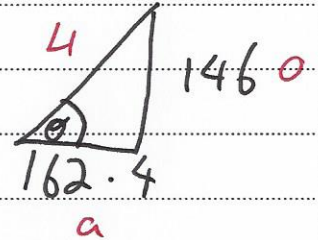 H
146 O
θ
162.4
a